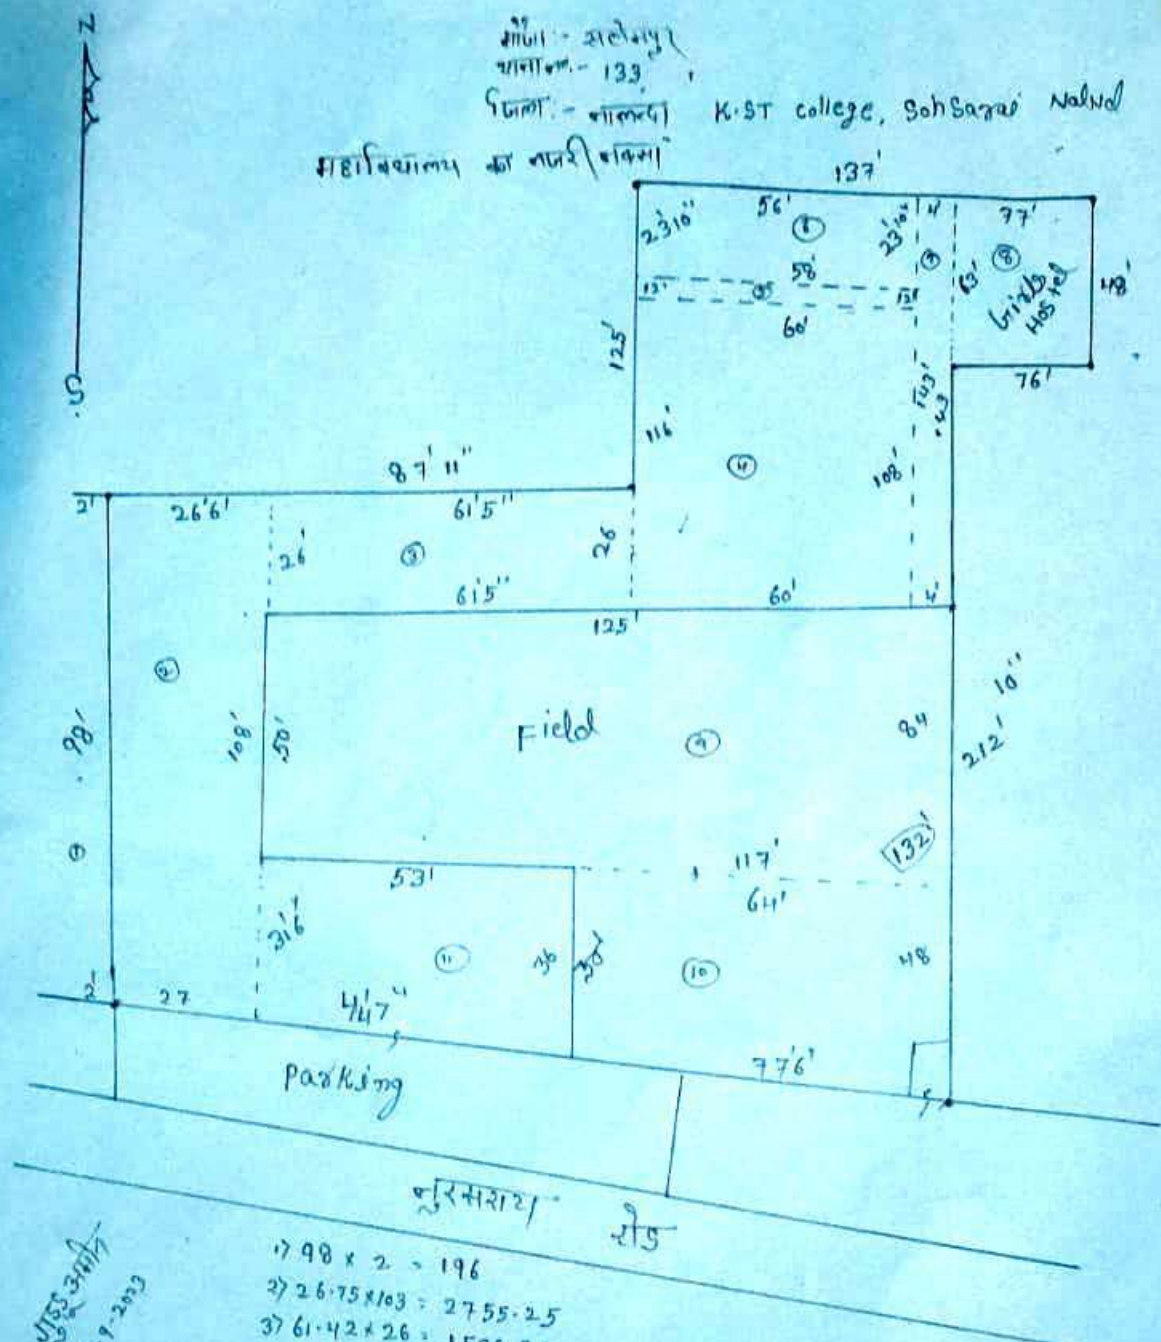 N
S
मौजा :- सलेमपुर
थाना न०.- 133
जिला :- नालन्दा K.ST college, Sohsarai Nalnd
महाविद्यालय का नजरी नक्सा
137'
23'10" 56' 6 23'10" 4' 77'
7 8
58'
12' 5 12' 63' Girls Hostel 48'
60'
125' 143' 76'
43
116' 4 108'
87'11"
2' 26'6' 61'5"
26' 3 26
61'5" 60' 4'
125'
2
10"
98' 108' 50' Field 9 84 212'
1
132'
53' 117'
64'
31'6' 11 36 10 48
2 27 4'47" 77'6'
Parking
नुरसराय रोड
1) 98 x 2 = 196
2) 26.75x103 = 2755.25
3) 61.42 x 26 =
9-2023